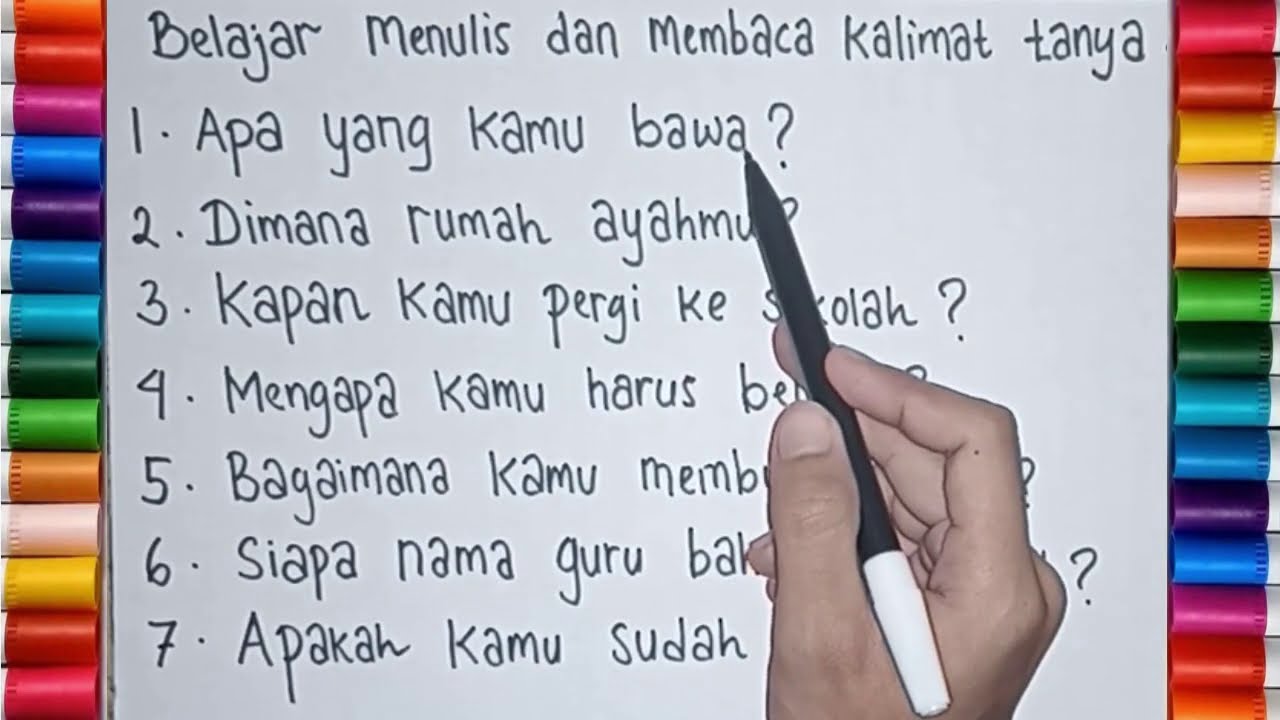 Belajar Menulis dan Membaca Kalimat tanya
1. Apa yang kamu bawa?
2. Dimana rumah ayahmu?
3. Kapan kamu pergi ke sekolah?
4. Mengapa kamu harus ?
5. Bagaimana kamu ?
6. Siapa nama guru ?
7. Apakah kamu sudah